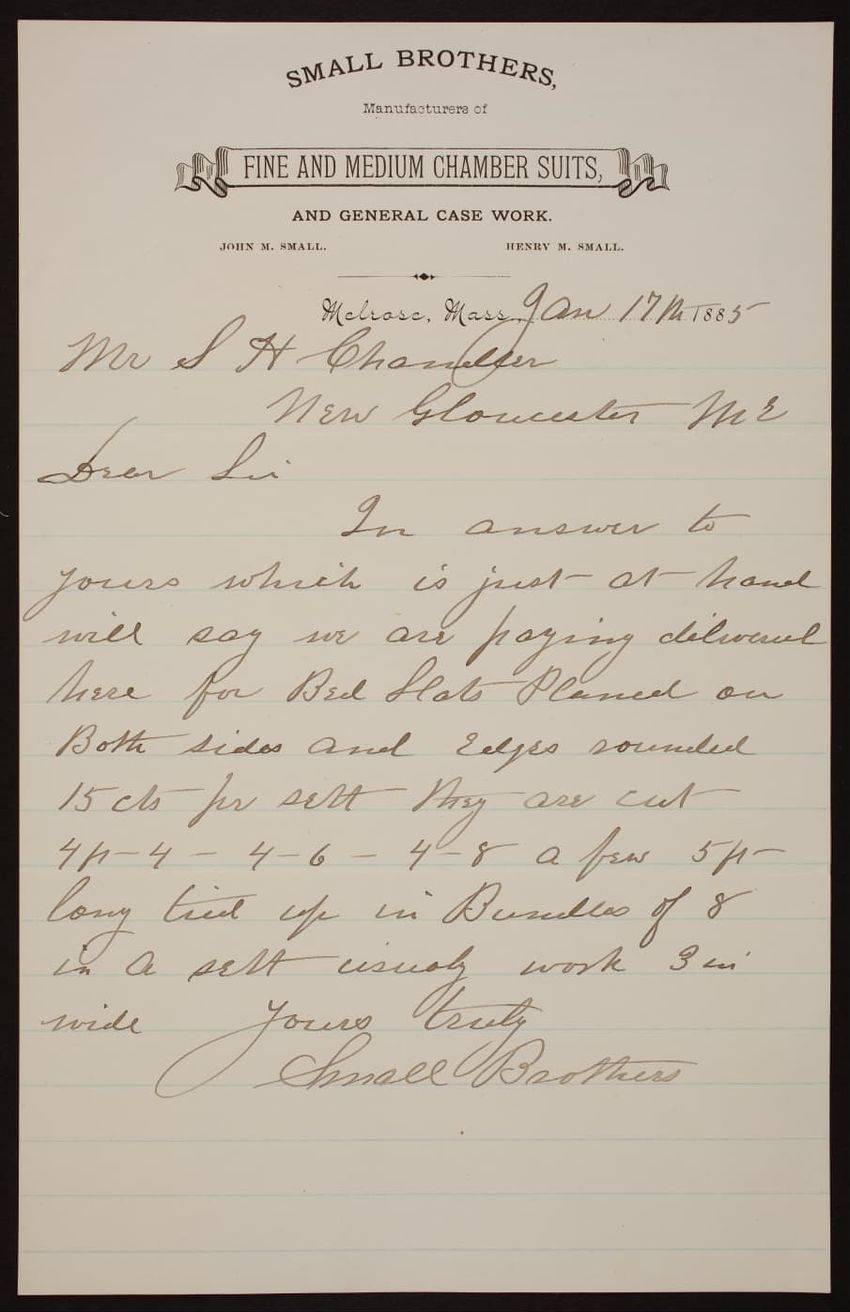 SMALL BROTHERS,
Manufacturers of
FINE AND MEDIUM CHAMBER SUITS,
AND GENERAL CASE WORK.
JOHN M. SMALL. HENRY M. SMALL.
Melrose, Mass., Jan 17th 1885
Mr S H Chandler
New Gloucester ME
Dear Sir
In answer to
yours which is just at hand
will say we are paying dilivered
here for Bed Slats Planed on
Both sides and Edges rounded
15 cts pr sett they are cut
4ft-4 - 4-6 - 4-8 a few 5ft
long tied up in Bundles of 8
in a sett usualy work 3 in
wide Yours truly
Small Brothers